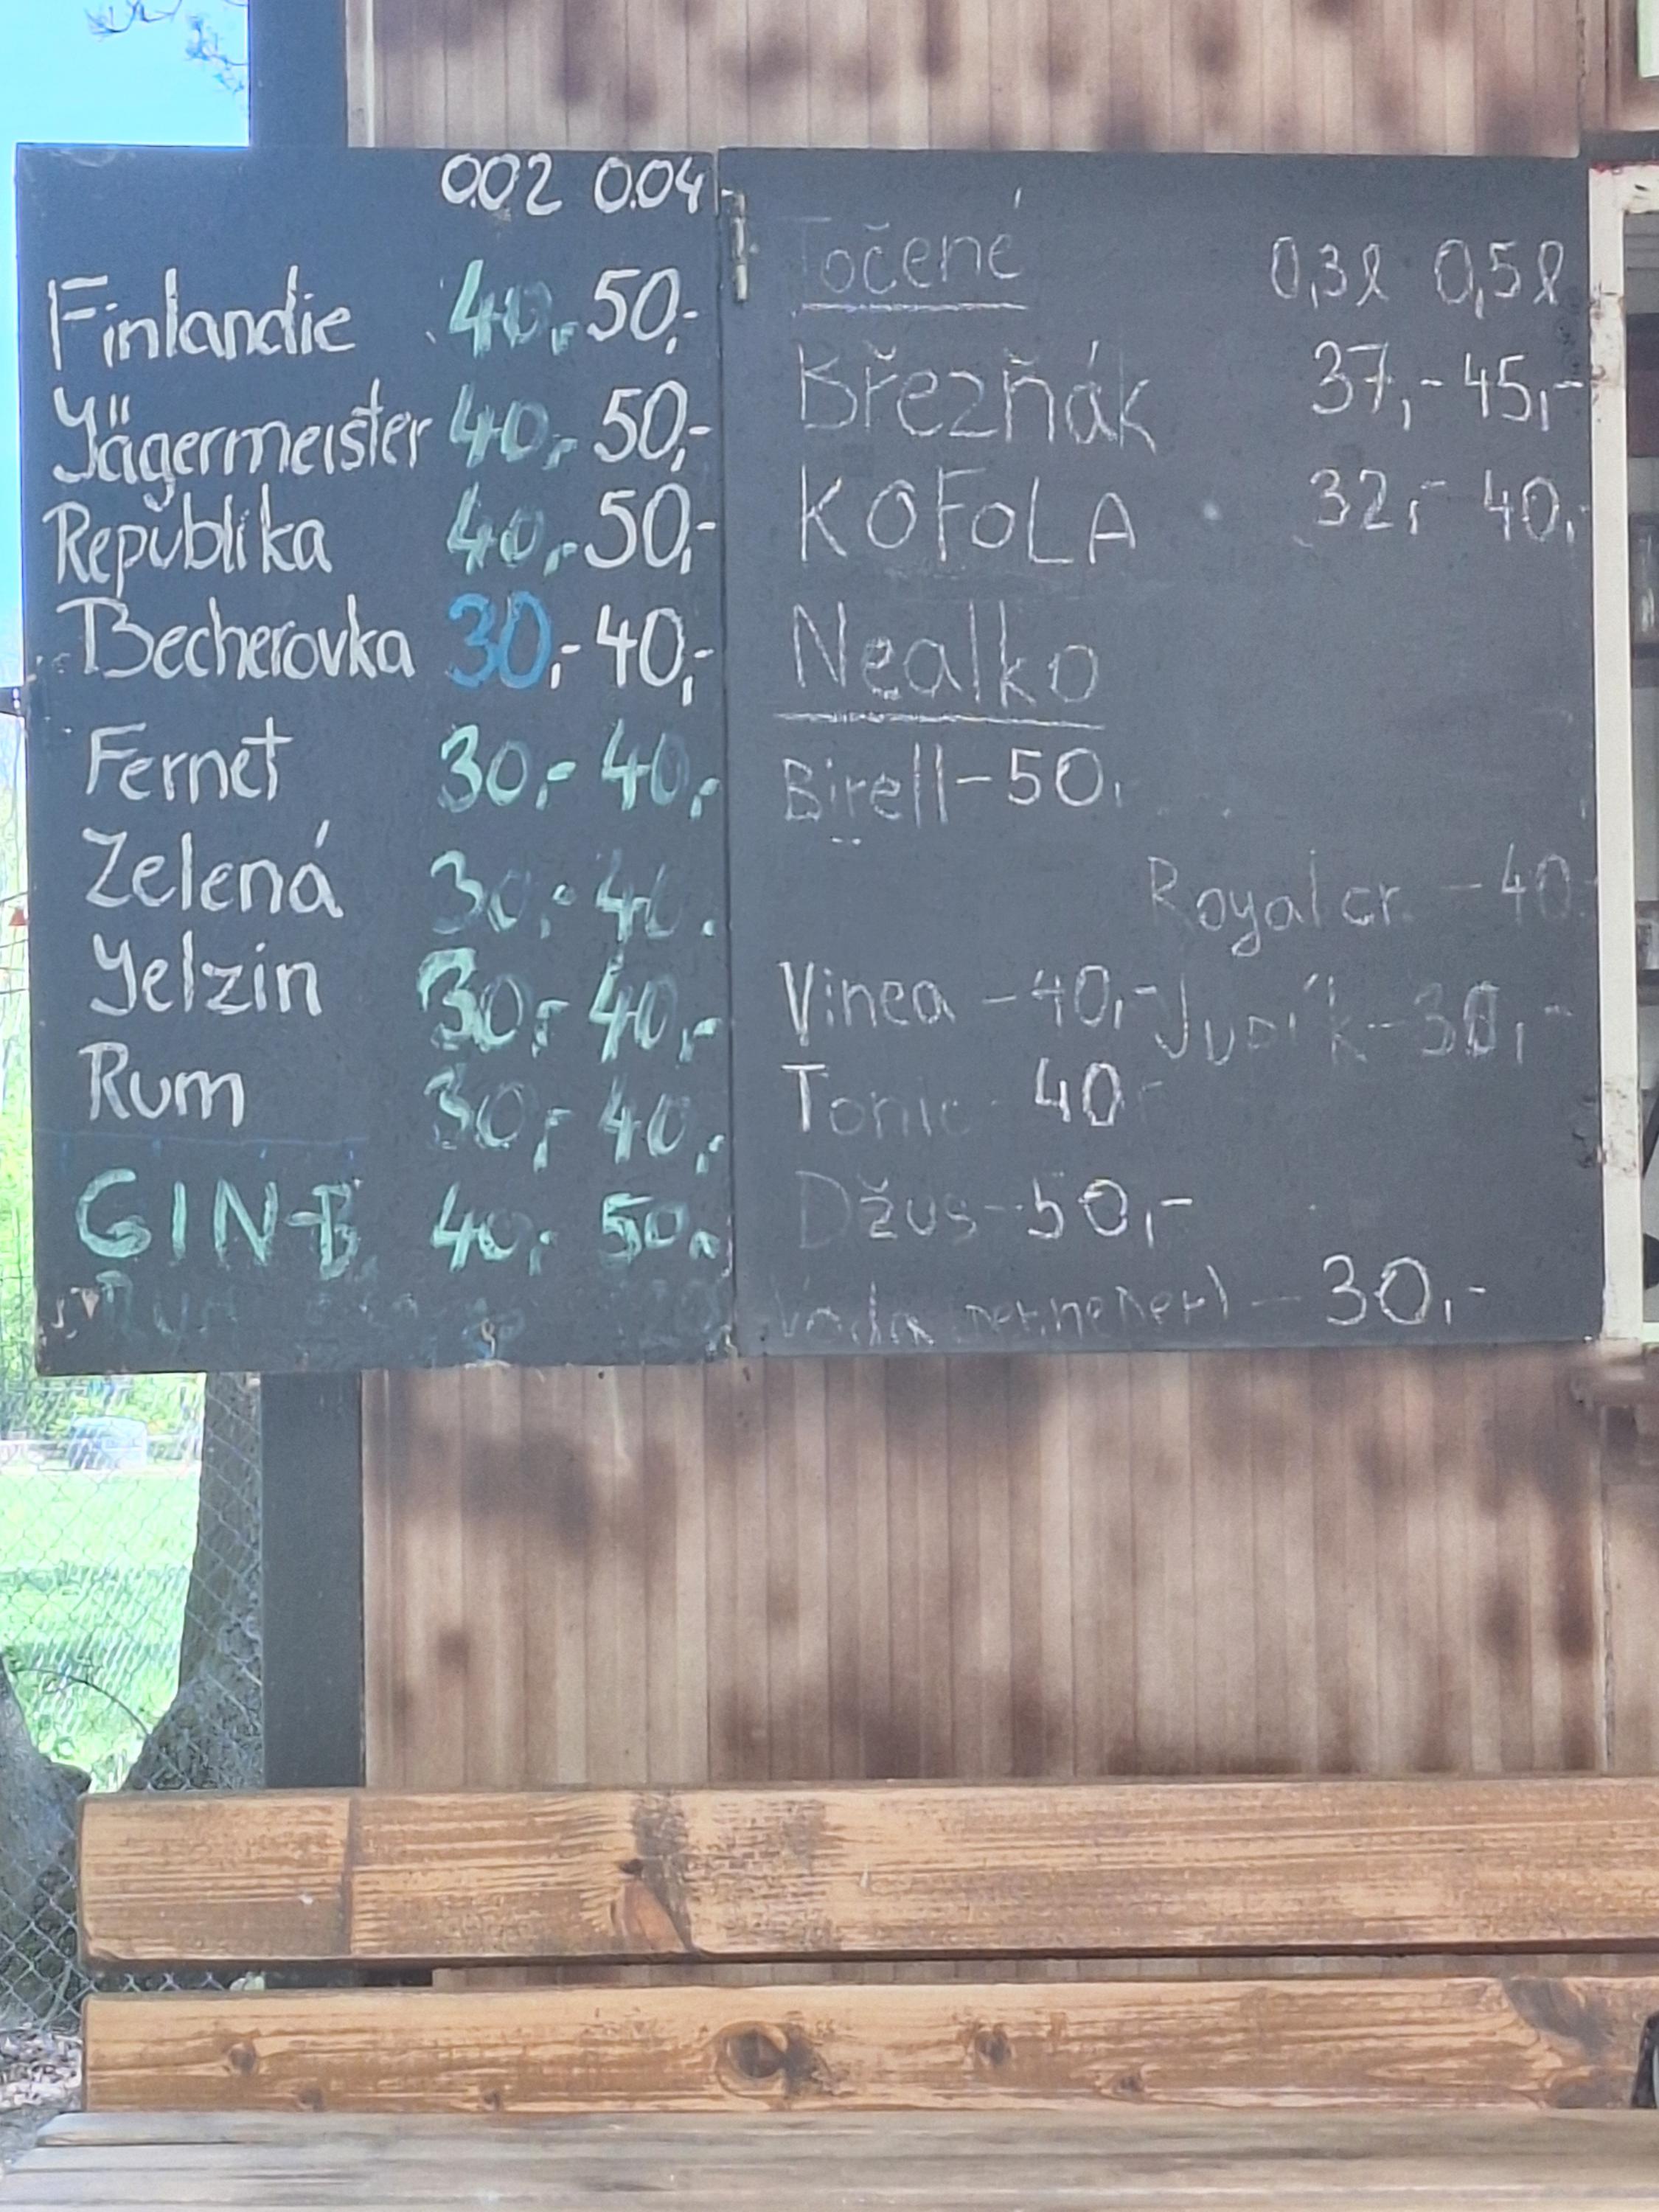 0.02 0.04
Finlandie 40,- 50,-
Jägermeister 40,- 50,-
Republika 40,- 50,-
Becherovka 30,- 40,-
Fernet 30,- 40,-
Zelená 30,- 40,
Jelzin 30,- 40,-
Rum 30,- 40,-
GIN-B 40,- 50,-
Točené 0,3l 0,5l
Březňák 37,- 45,-
KOFOLA 32,- 40,-
Nealko
Birell - 50,
Royal cr. - 40.-
Vinea - 40,- Jupík - 30,-
Tonic - 40
Džus - 50,-
Voda - 30,-